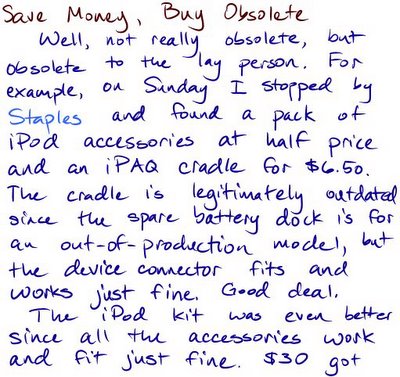 Save Money, Buy Obsolete
Well, not really obsolete, but
obsolete to the lay person. For
example, on Sunday I stopped by
Staples and found a pack of
iPod accessories at half price
and an iPAQ cradle for $6.50.
The cradle is legitimately outdated
since the spare battery dock is for
an out-of-production model, but
the device connector fits and
works just fine. Good deal.
The iPod kit was even better
since all the accessories work
and fit just fine. $30 got